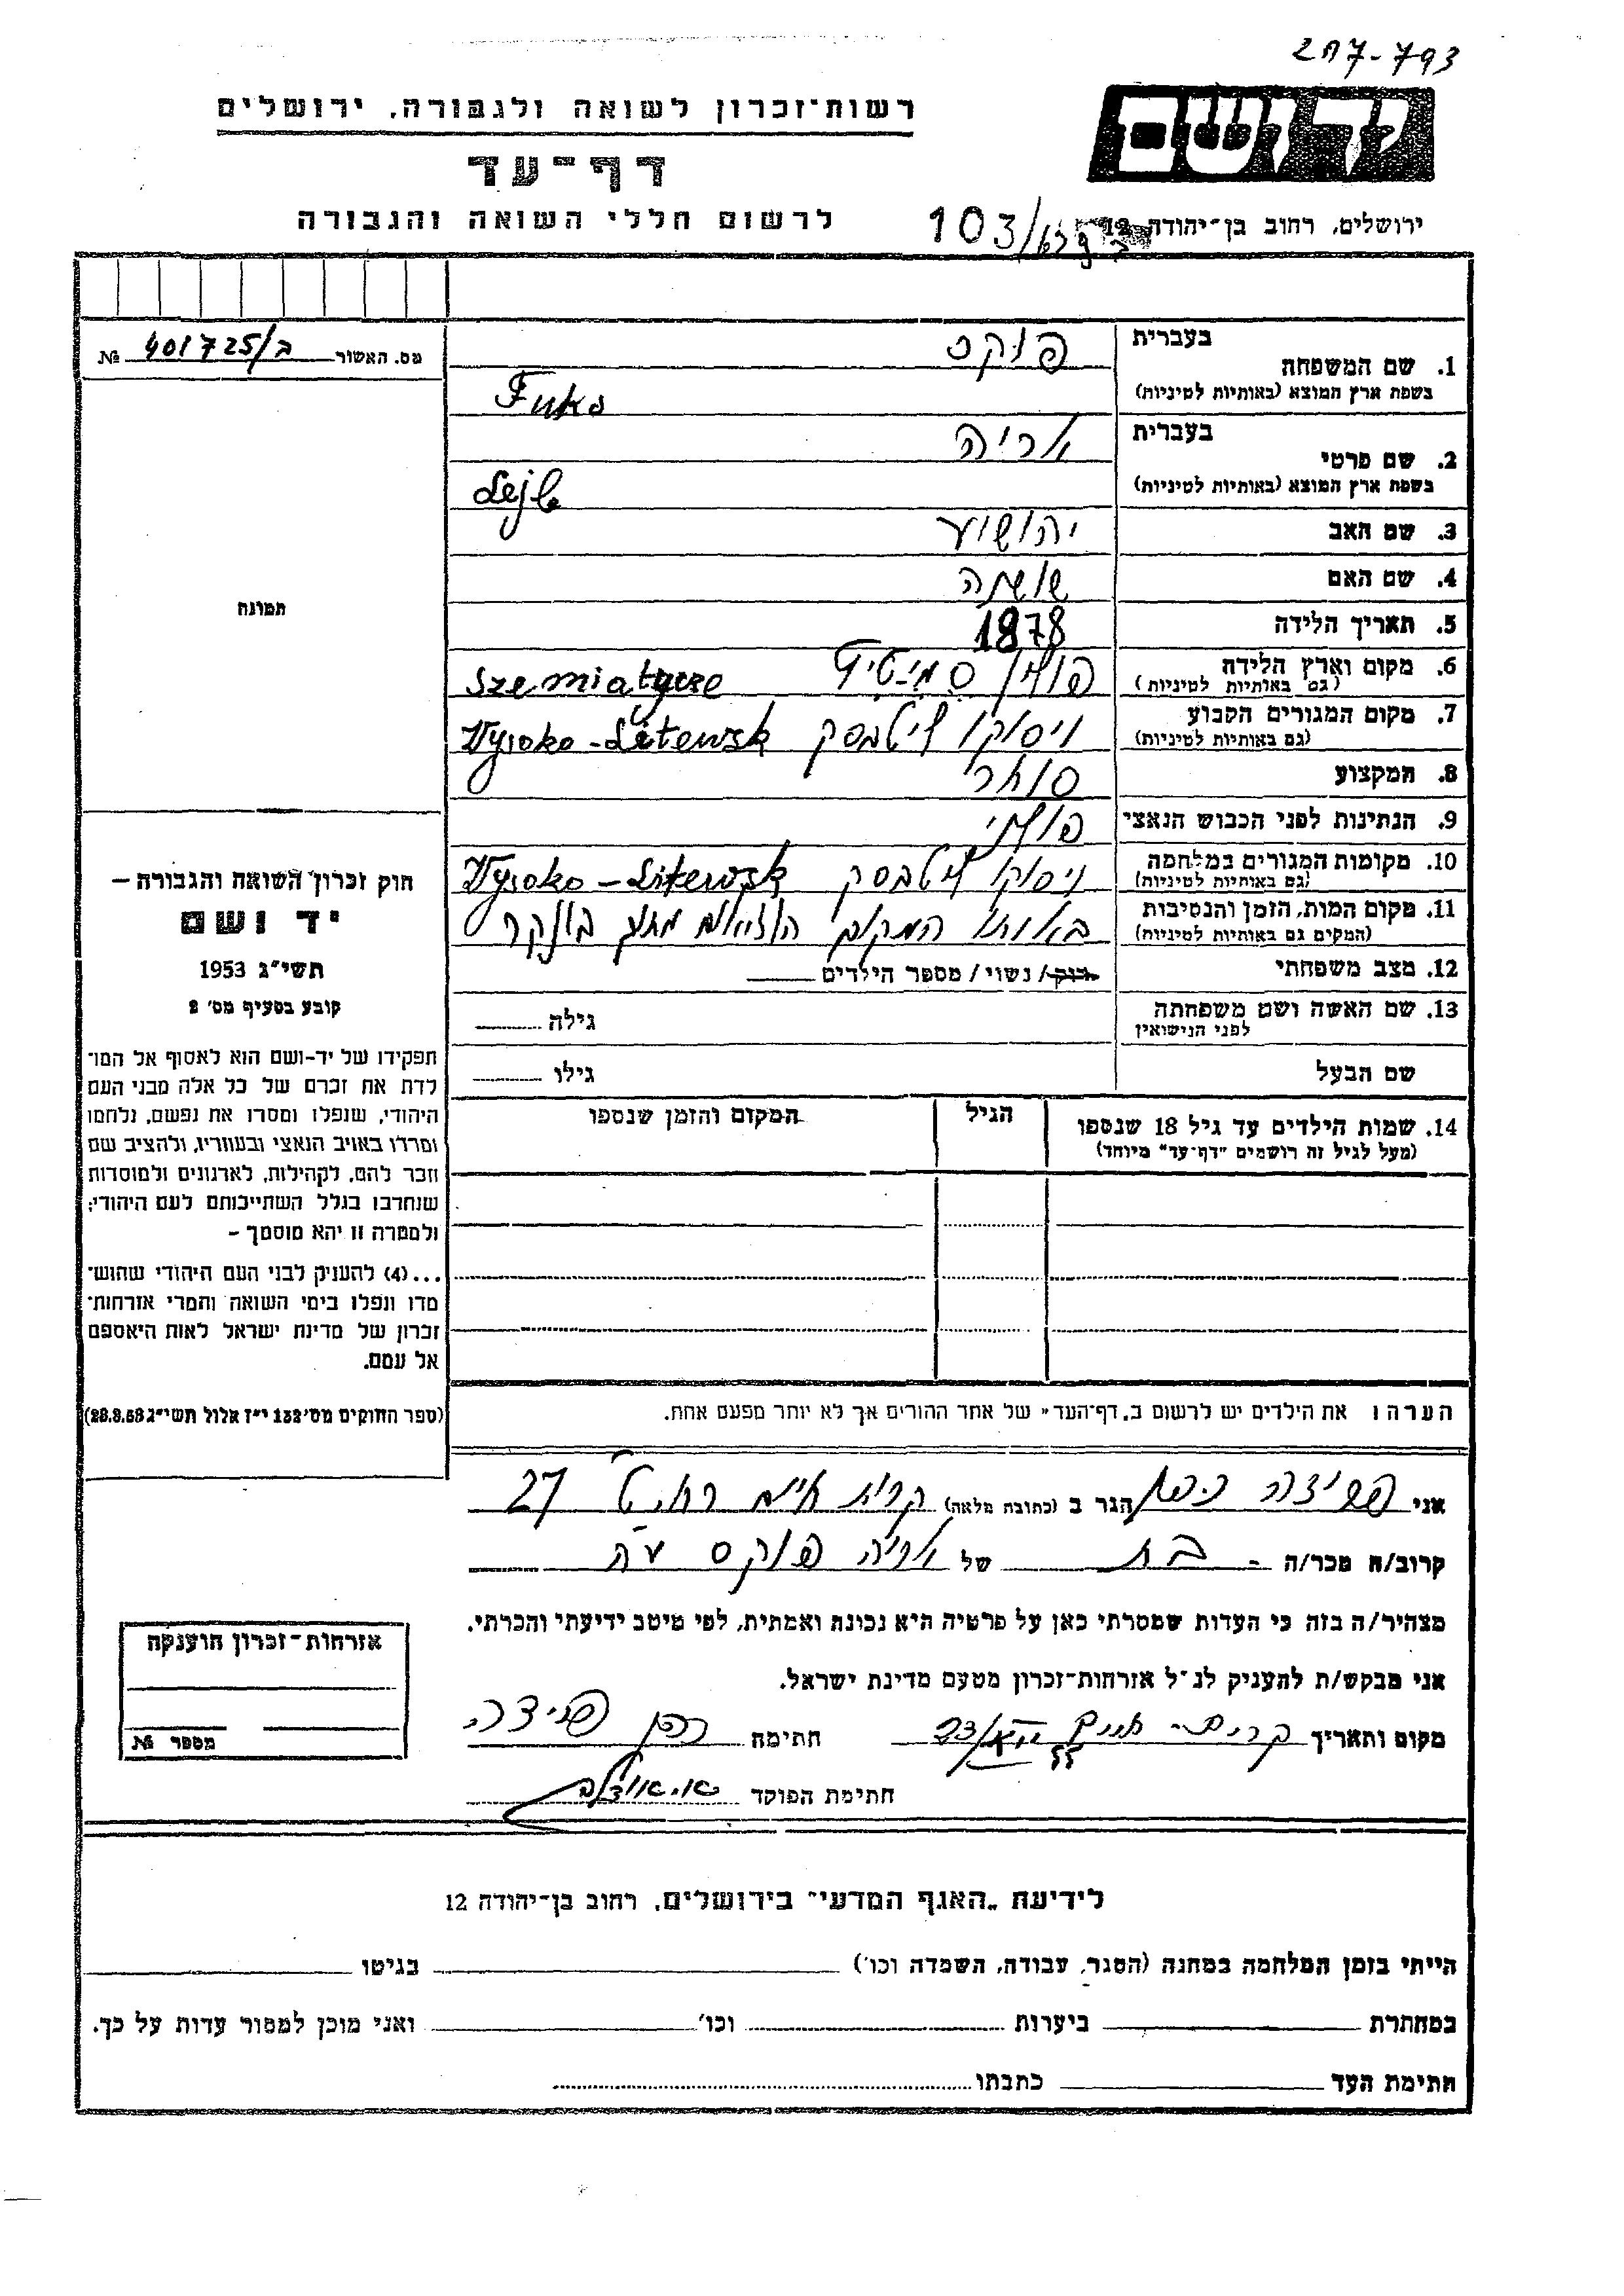 207-793
רשות־זכרון לשואה ולגבורה, ירושלים
יד ושם
דף־עד
לרשום חללי השואה והגבורה
ירושלים, רחוב בן־יהודה 12
103/
מס. האשור 401725/ב №
1. שם המשפחה בעברית פוקס
בשפת ארץ המוצא (באותיות לטיניות) Fuks
2. שם פרטי בעברית אריה
בשפת ארץ המוצא (באותיות לטיניות) Lejb
3. שם האב יהושוע
4. שם האם שושנה
5. תאריך הלידה 1878
6. מקום וארץ הלידה (גם באותיות לטיניות) פולין Szemiatycze
7. מקום המגורים הקבוע (גם באותיות לטיניות) ויסוקו ליטבסק Wysoko-Litewsk
8. המקצוע סוחר
9. הנתינות לפני הכבוש הנאצי פולני
10. מקומות המגורים במלחמה (גם באותיות לטיניות) ויסוקו ליטבסק Wysoko-Litewsk
11. מקום המות, הזמן והנסיבות (המקום גם באותיות לטיניות) באותו המקום בונקר
12. מצב משפחתי רווק/נשוי/מספר הילדים
13. שם האשה ושם משפחתה לפני הנישואין גילה
שם הבעל גילו
14. שמות הילדים עד גיל 18 שנספו הגיל המקום והזמן שנספו
(מעל לגיל זה רושמים "דף־עד" מיוחד)
הערה: את הילדים יש לרשום ב„דף־העד" של אחד ההורים אך לא יותר מפעם אחת.
תמונה
חוק זכרון השואה והגבורה –
יד ושם
תשי"ג 1953
קובע בסעיף מס' 2
תפקידו של יד-ושם הוא לאסוף אל המו־
לדת את זכרם של כל אלה מבני העם
היהודי, שנפלו ומסרו את נפשם, נלחמו
ומרדו באויב הנאצי ובעוזריו, ולהציב שם
וזכר להם, לקהילות, לארגונים ולמוסדות
שנחרבו בגלל השתייכותם לעם היהודי;
ולמטרה זו יהא מוסמך –
...(4) להעניק לבני העם היהודי שהוש־
מדו ונפלו בימי השואה והמרי אזרחות־
זכרון של מדינת ישראל לאות היאספם
אל עמם.
(ספר החוקים מס' 132 י"ז אלול תשי"ג 28.8.53)
אני הגר ב (כתובת מלאה) קרית חיים רח. ט 27
קרוב/ה מכר/ה - בת של אריה פוקס
מצהיר/ה בזה כי העדות שמסרתי כאן על פרטיה היא נכונה ואמתית, לפי מיטב ידיעתי והכרתי.
אני מבקש/ת להעניק לנ"ל אזרחות־זכרון מטעם מדינת ישראל.
מקום ותאריך קרית-חיים 55 חתימה
חתימת הפוקד
אזרחות־זכרון הוענקה
מספר №
לידיעת „האגף המדעי" בירושלים, רחוב בן־יהודה 12
הייתי בזמן המלחמה במחנה (הסגר, עבודה, השמדה וכו') בגיטו
במחתרת ביערות וכו' ואני מוכן למסור עדות על כך.
חתימת העד כתבתו